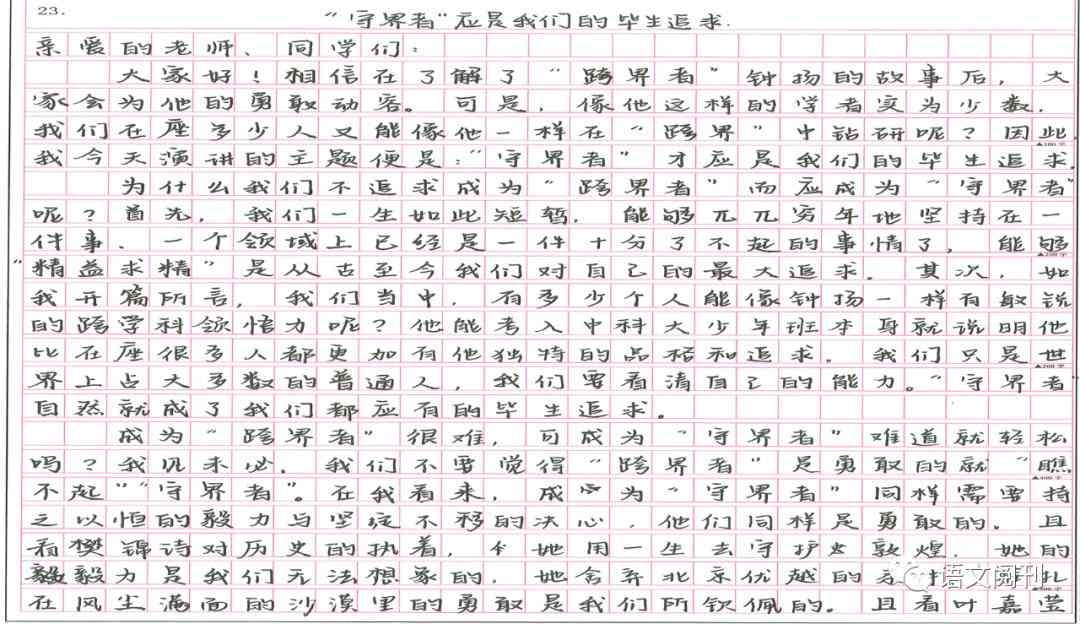 23.
“守界者”应是我们的毕生追求.
亲爱的老师、同学们：
大家好！相信在了解了“跨界者”钟扬的故事后，大
家会为他的勇敢动容。可是，像他这样的学者实为少数，
我们在座多少人又能像他一样在“跨界”中钻研呢？因此，
我今天演讲的主题便是：“守界者”才应是我们的毕生追求。
为什么我们不追求成为“跨界者”而应成为“守界者”
呢？首先，我们一生如此短暂，能够兀兀穷年地坚持在一
件事、一个领域上已经是一件十分了不起的事情了，能够
“精益求精”是从古至今我们对自己的最大追求。其次，如
我开篇所言，我们当中，有多少个人能像钟扬一样有敏锐
的跨学科领悟力呢？他能考入中科大少年班本身就说明他
比在座很多人都更加有他独特的品格和追求。我们只是世
界上占大多数的普通人，我们要看清自己的能力。“守界者”
自然就成了我们都应有的毕生追求。
成为“跨界者”很难，可成为“守界者”难道就轻松
吗？我见未必。我们不要觉得“跨界者”是勇敢的就“瞧
不起”“守界者”。在我看来，成为“守界者”同样需要持
之以恒的毅力与坚定不移的决心，他们同样是勇敢的。且
看樊锦诗对历史的执着，她用一生去守护敦煌，她的
毅力是我们无法想象的，她舍弃北京优越的
在风尘满面的沙漠里的勇敢是我们所钦佩的。且看叶嘉莹
语文阅刊